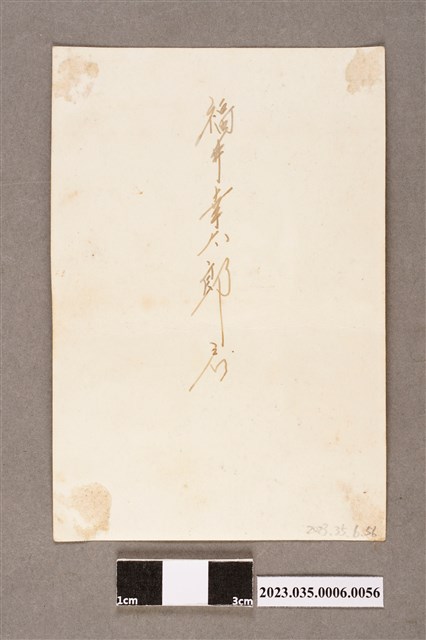 橋本幸太郎君
2023.35.6.56
1cm 3cm
2023.035.0006.0056